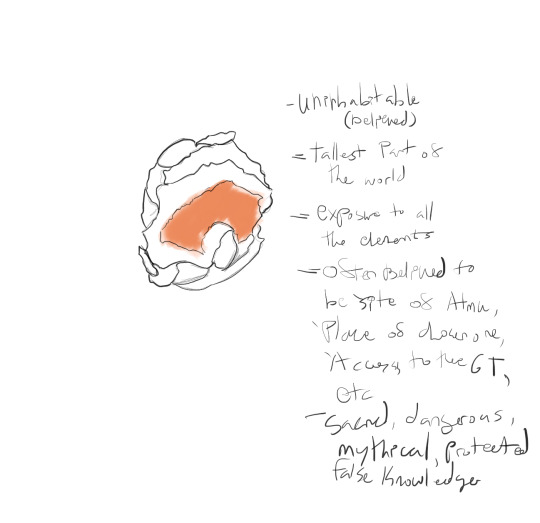 - Uninhabitable
(believed)
= tallest Part of
the world
= exposure to all
the elements
= Often Believed to
be site of
'Place of
'Access to the GT,
etc
- Sacred, dangerous,
mythical, protected
false knowledge